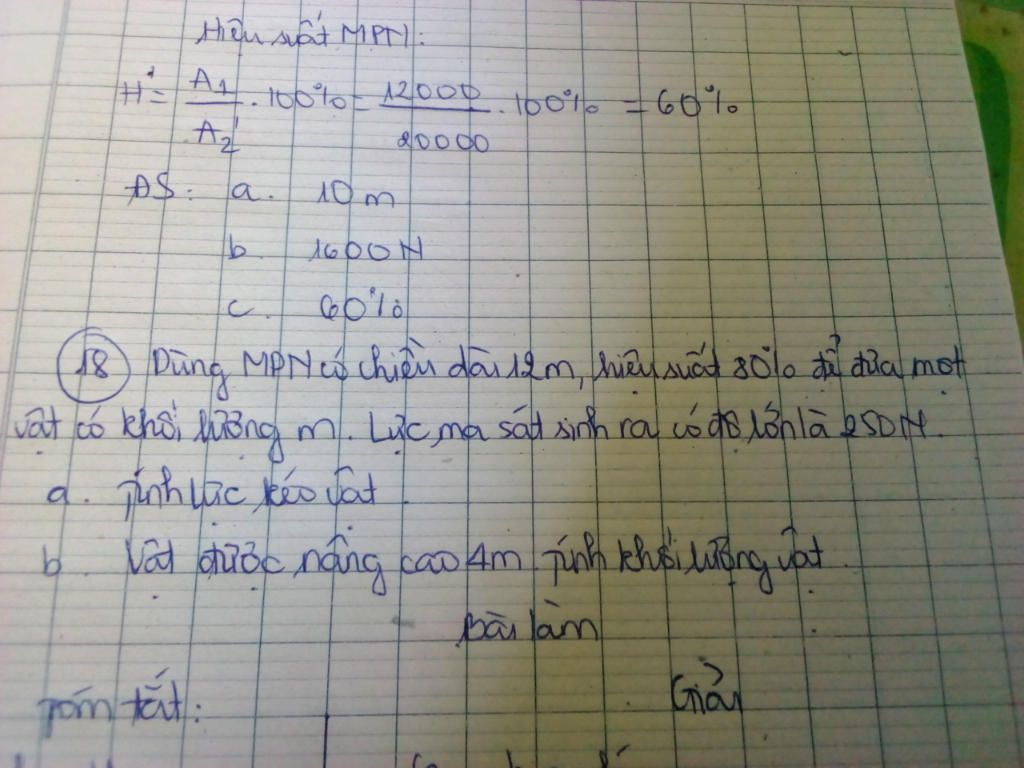 Hiệu suất MPN:
H' = A1/A2' . 100% = 12000/20000 . 100% = 60%
ĐS: a. 10 m
b. 1600N
c. 60%
18 Dùng MPN có chiều dài 12m, hiệu suất 80% để đưa một
vật có khối lượng m. Lực ma sát sinh ra có độ lớn là 250N.
a. Tính lực kéo vật.
b. Vật được nâng cao 4m. Tính khối lượng vật.
Bài làm
Tóm tắt: Giải